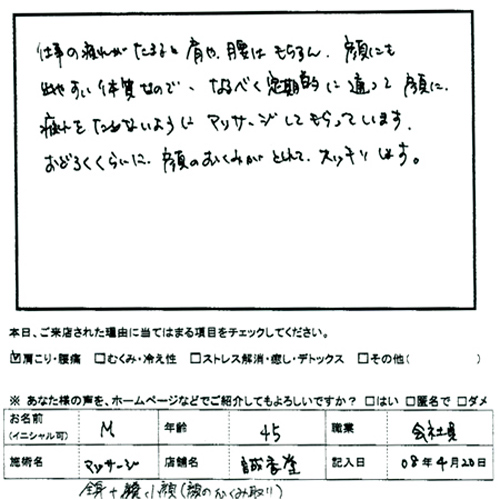 仕事の疲れがたまると肩や、腰はもちろん、顔にも
出やすい体質なので、なるべく定期的に通って顔に
疲れをためないようにマッサージしてもらっています。
おどろくくらいに、顔のむくみがとれて、スッキリします。
本日、ご来店された理由に当てはまる項目をチェックしてください。
☑肩こり・腰痛 □むくみ・冷え性 □ストレス解消・癒し・デトックス □その他( )
※ あなた様の声を、ホームページなどでご紹介してもよろしいですか? □はい □匿名で □ダメ
お名前 M 年齢 45 職業 会社員
(イニシャル可)
施術名 マッサージ 店舗名 誠春堂 記入日 08年4月20日
全身+ 小顔(顔のむくみ取り)